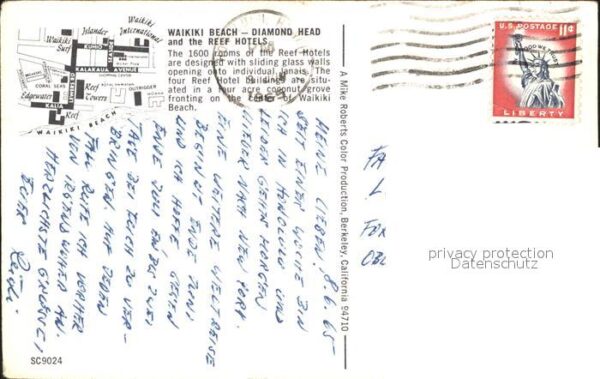 WAIKIKI BEACH — DIAMOND HEAD
and the REEF HOTELS.
The 1600 rooms of the Reef Hotels
are designed with sliding glass walls
opening onto individual lanais. The
four Reef Hotel buildings are situ-
ated in a four acre coconut grove
fronting on the sands of Waikiki
Beach.
Waikiki Surf
Islander
Waikiki International
KUHIO
KALAKAUA AVENUE
SHOPPING CENTER
CORAL SEAS
Edgewater
Reef Towers
LEWERS RD
KALIA
Reef
OUTRIGGER
WAIKIKI BEACH
1965
U.S. POSTAGE 11¢
IN GOD WE TRUST
LIBERTY
A Mike Roberts Color Production, Berkeley, California 94710
MEINE LIEBEN! 8.6.65
SEIT EINER WOCHE BIN
ICH IN HONOLULU UND
MORGEN
WIEDER NACH NEW YORK.
EINE WEITERE WELTREISE
BEGINNT ENDE JUNI
UND ICH HOFFE,
ENDE JULI EIN BIS ZWEI
TAGE BEI EUCH ZU VER-
BRINGEN. AUF JEDEN
FALL RUFE ICH VORHER
VON
AN.
HERZLICHSTE GRÜSSE,
EUER
FA
L
FÜR
privacy protection
Datenschutz
SC9024